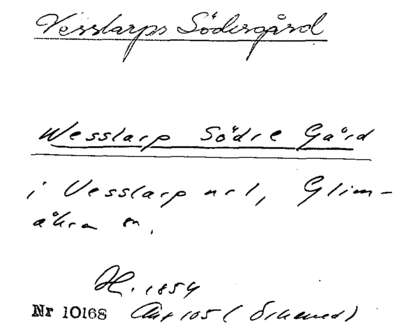 Vesslarps Södergård
Wesslarp Södre Gaård
i Vesslarp nr 1, Glim-
åkra sn.
H. 1854
Nr 10168 Akt 105 (Örkened)